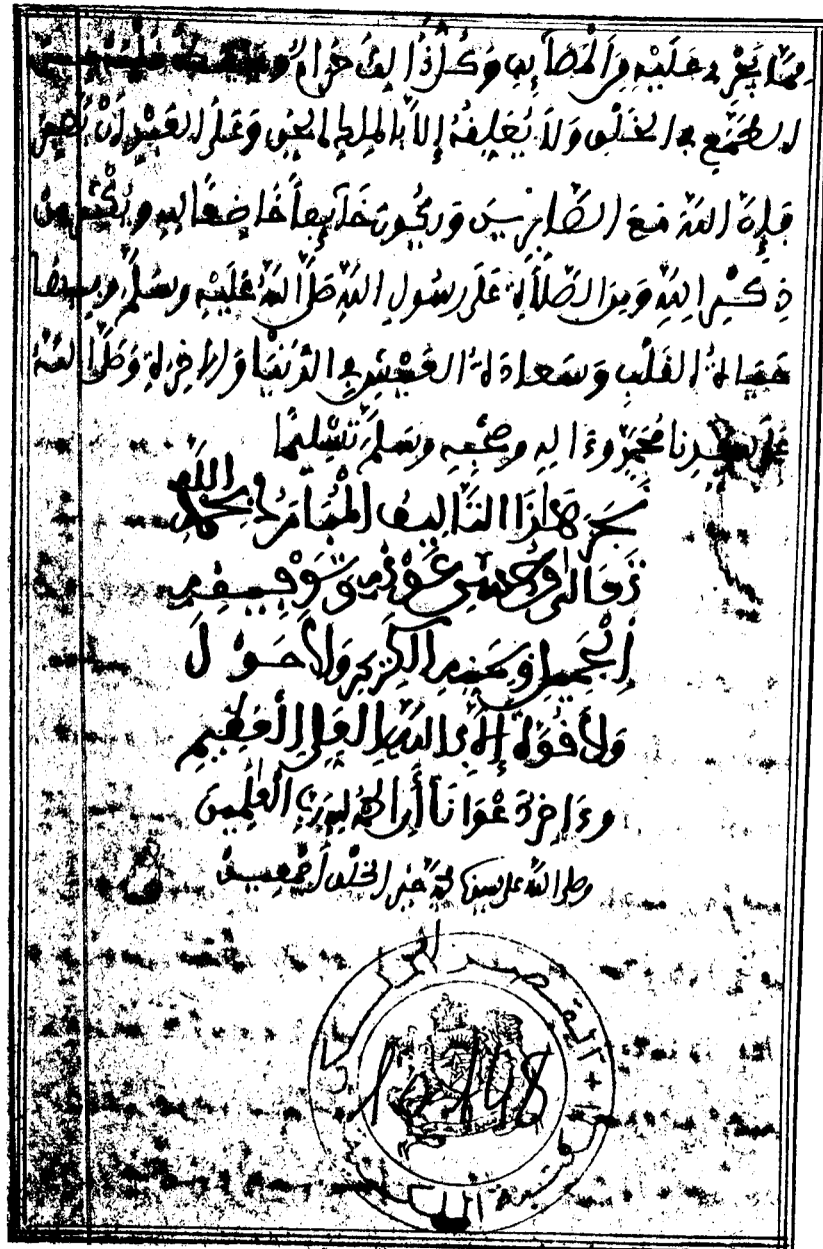 مما يجري عليه من المصائب وكل ذلك حرام
الطمع في الخلق ولا يعلقه إلا بالملك الحق وعلى العبد أن يصبر
فإن الله مع الصابرين ويكون خائفا خاضعا لله ويكثر من
ذكر الله ومن الصلاة على رسول الله صلى الله عليه وسلم
حياة القلب وسعادة العيش في الدنيا والاخرة وصلى الله
على سيدنا محمد وءاله وصحبه وسلم تسليما
نجز هاذا التأليف المبارك بحمد الله
تعالى وحسن عونه وتوفيقه
الجميل ويمنه الكريم ولا حول
ولا قوة إلا بالله العلي العظيم
وءاخر دعوانا أن الحمد لله رب العلمين
وصلى الله على سيدنا محمد خير الخلق أجمعين
القصر الملكي
المكتبة الملكية
12148